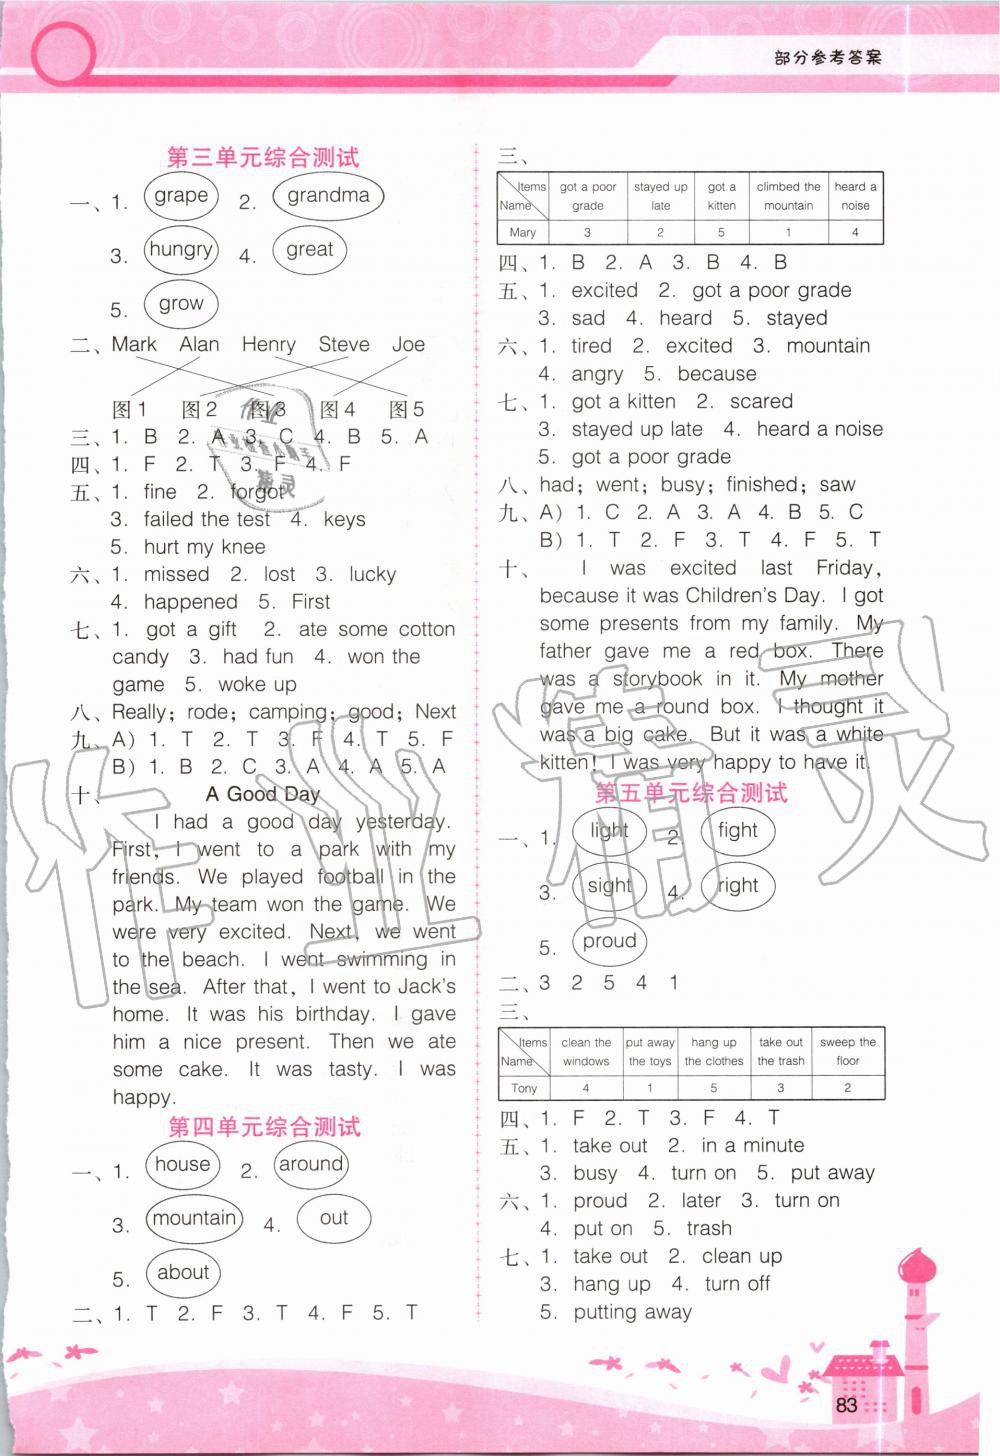 部分参考答案
第三单元综合测试
一、1. grape 2. grandma
3. hungry 4. great
5. grow
二、Mark Alan Henry Steve Joe
图1 图2 图3 图4 图5
三、1. B 2. A 3. C 4. B 5. A
四、1. F 2. T 3. F 4. F
五、1. fine 2. forgot
3. failed the test 4. keys
5. hurt my knee
六、1. missed 2. lost 3. lucky
4. happened 5. First
七、1. got a gift 2. ate some cotton
candy 3. had fun 4. won the
game 5. woke up
八、Really; rode; camping; good; Next
九、A) 1. T 2. T 3. F 4. T 5. F
B) 1. B 2. C 3. A 4. A 5. A
十、 A Good Day
I had a good day yesterday.
First, I went to a park with my
friends. We played football in the
park. My team won the game. We
were very excited. Next, we went
to the beach. I went swimming in
the sea. After that, I went to Jack's
home. It was his birthday. I gave
him a nice present. Then we ate
some cake. It was tasty. I was
happy.
第四单元综合测试
一、1. house 2. around
3. mountain 4. out
5. about
二、1. T 2. F 3. T 4. F 5. T
三、
Items got a poor stayed up got a climbed the heard a
Name grade late kitten mountain noise
Mary 3 2 5 1 4
四、1. B 2. A 3. B 4. B
五、1. excited 2. got a poor grade
3. sad 4. heard 5. stayed
六、1. tired 2. excited 3. mountain
4. angry 5. because
七、1. got a kitten 2. scared
3. stayed up late 4. heard a noise
5. got a poor grade
八、had; went; busy; finished; saw
九、A) 1. C 2. A 3. A 4. B 5. C
B) 1. T 2. F 3. T 4. F 5. T
十、 I was excited last Friday,
because it was Children's Day. I got
some presents from my family. My
father gave me a red box. There
was a storybook in it. My mother
gave me a round box. I thought it
was a big cake. But it was a white
kitten! I was very happy to have it.
第五单元综合测试
一、1. light 2. fight
3. sight 4. right
5. proud
二、3 2 5 4 1
三、
Items clean the put away hang up take out sweep the
Name windows the toys the clothes the trash floor
Tony 4 1 5 3 2
四、1. F 2. T 3. F 4. T
五、1. take out 2. in a minute
3. busy 4. turn on 5. put away
六、1. proud 2. later 3. turn on
4. put on 5. trash
七、1. take out 2. clean up
3. hang up 4. turn off
5. putting away
83
作业精灵